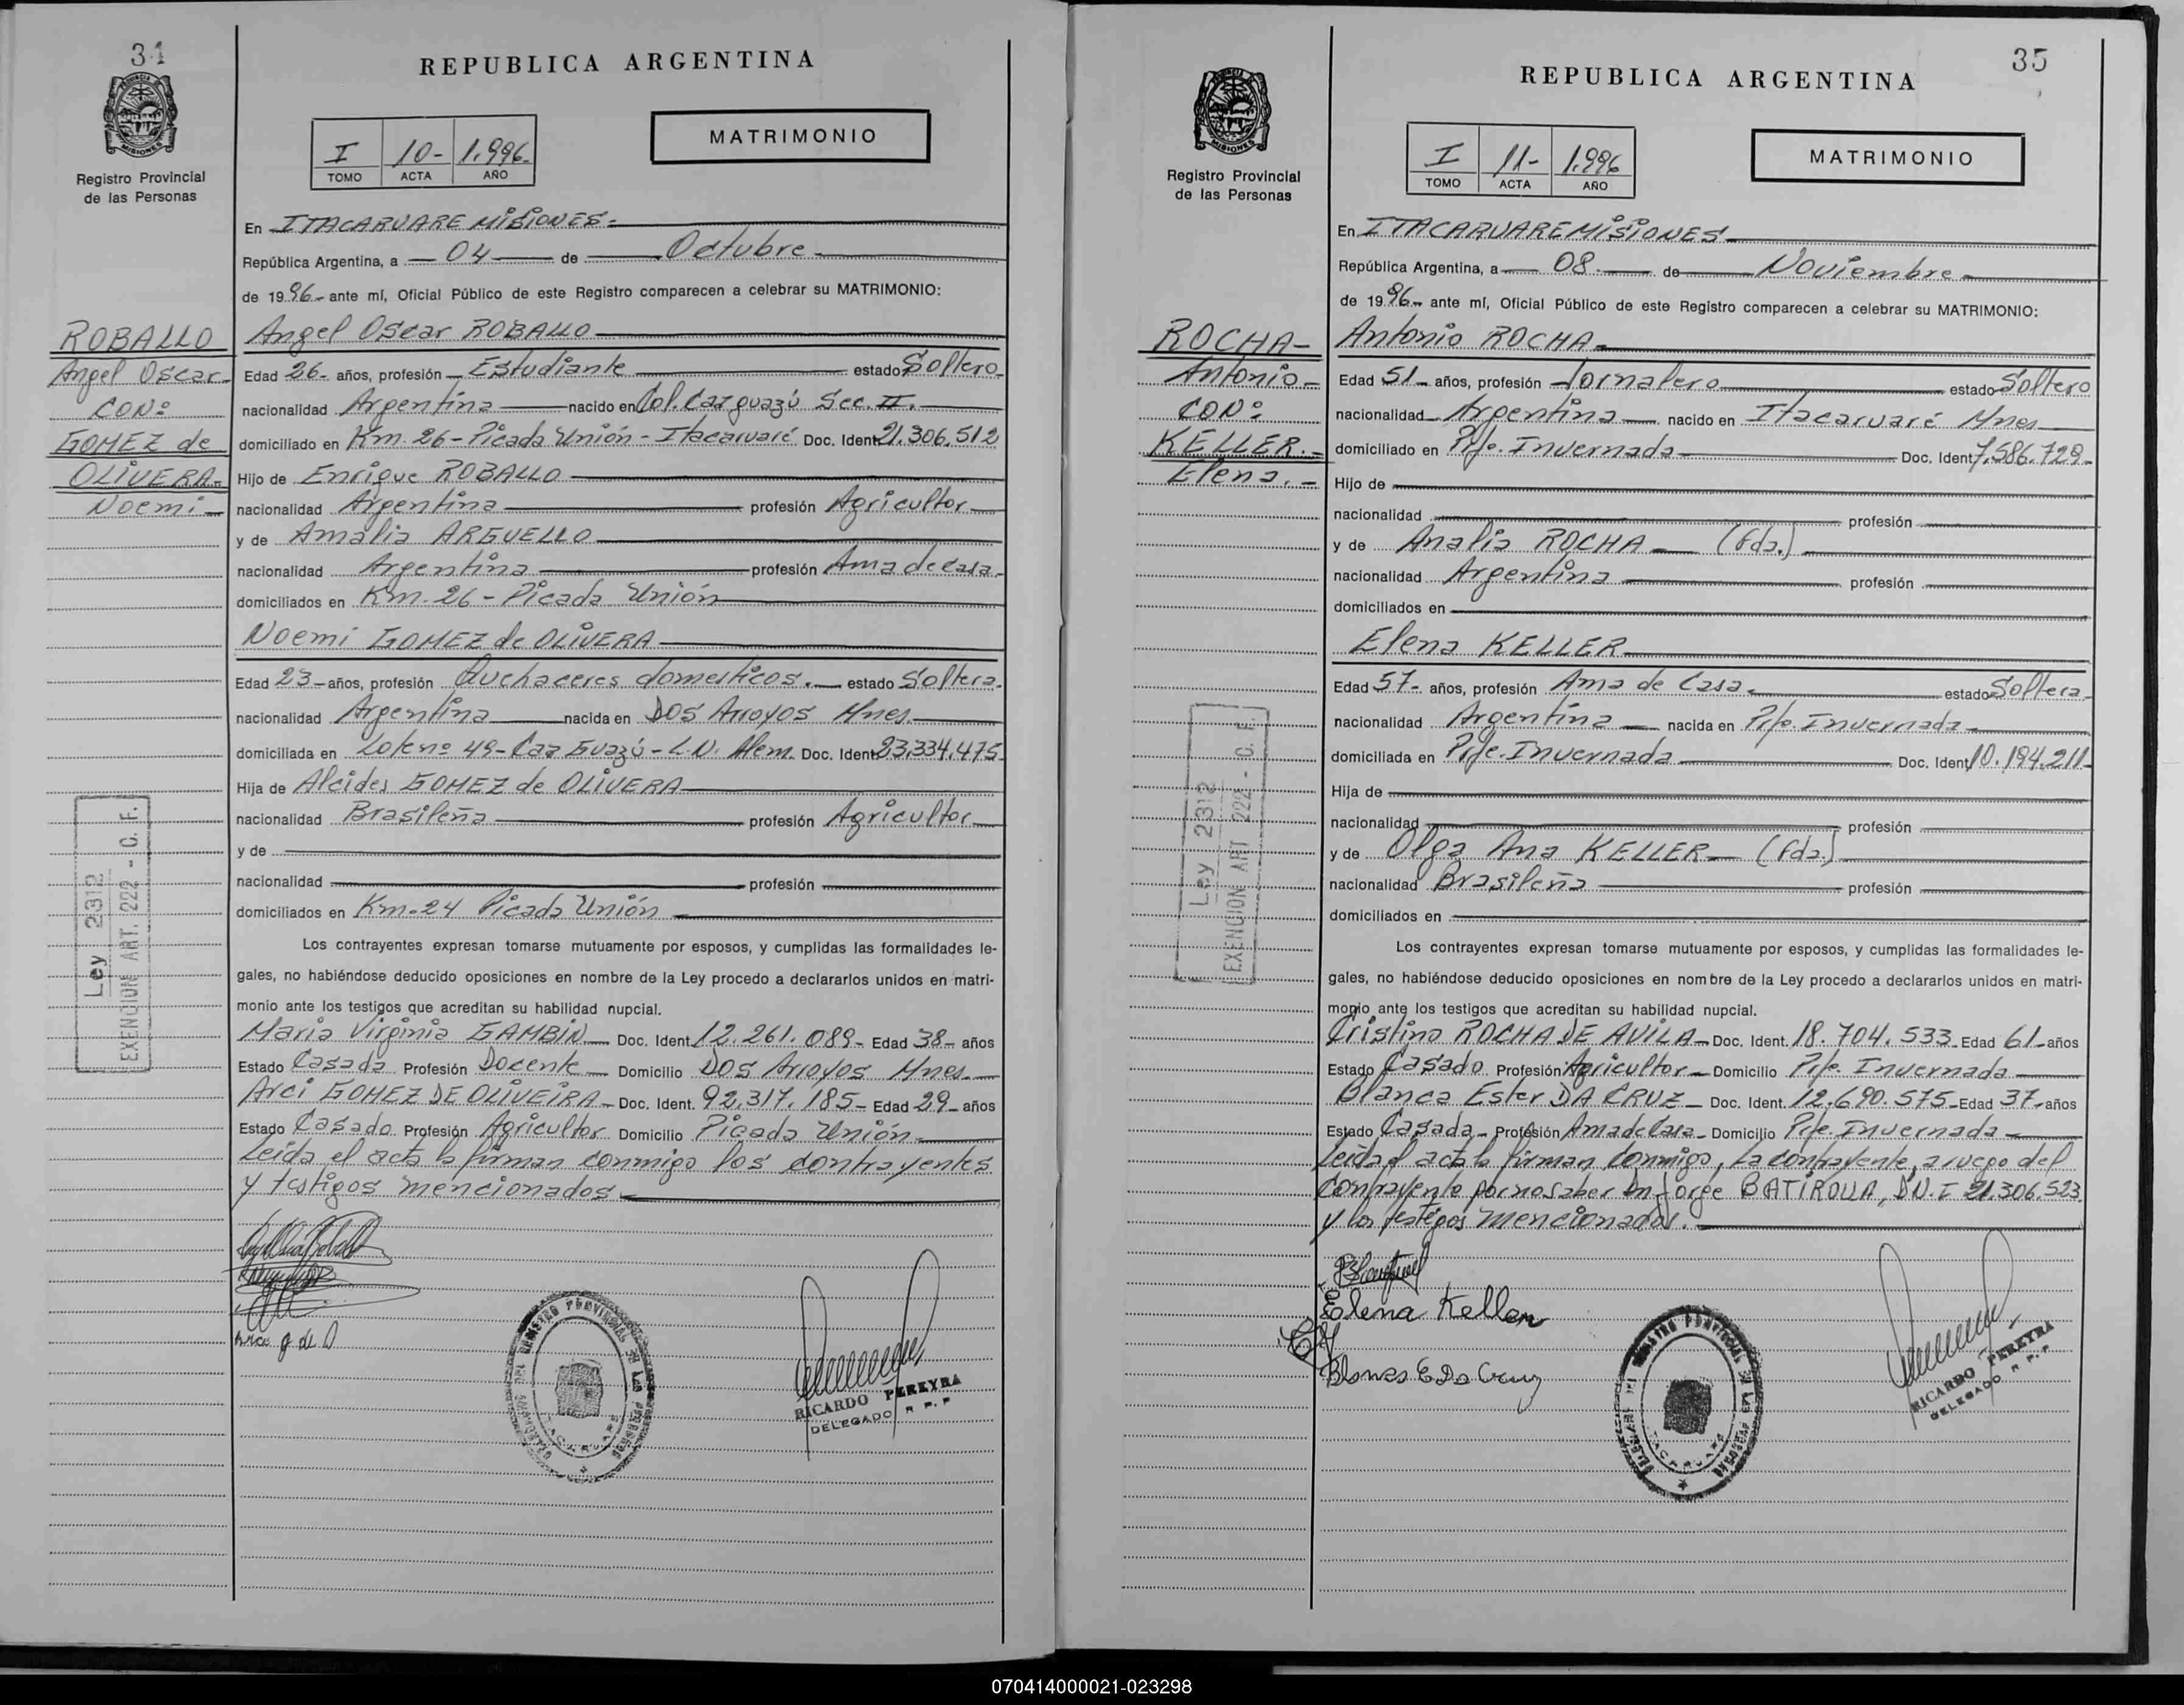 34
REPUBLICA ARGENTINA
I 10- 1.996-
TOMO ACTA AÑO
MATRIMONIO
Registro Provincial
de las Personas
En ITACARUARE MISIONES=
República Argentina, a 04 de Octubre
de 1996- ante mí, Oficial Público de este Registro comparecen a celebrar su MATRIMONIO:
ROBALLO
Angel Oscar
CON:
GOMEZ de
OLIVERA-
Noemi-
Angel Oscar ROBALLO
Edad 26- años, profesión Estudiante estado Soltero
nacionalidad Argentina nacido en Col. Caz guazú Sec. II.
domiciliado en Km. 26- Picada Unión - Itacaruaré Doc. Ident. 21.306.512
Hijo de Enrique ROBALLO
nacionalidad Argentina profesión Agricultor
y de Amalia ARGUELLO
nacionalidad Argentina profesión Ama de casa
domiciliados en Km. 26- Picada Unión
Noemi GOMEZ de OLIVERA
Edad 23- años, profesión Quehaceres domesticos. estado Soltera
nacionalidad Argentina nacida en DOS Arroyos Mnes.
domiciliada en Lote nº 49- Caa Guazú - L.N. Alem. Doc. Ident. 23.334.475
Hija de Alcides GOMEZ de OLIVERA
nacionalidad Brasileña profesión Agricultor
y de
nacionalidad profesión
domiciliados en Km.24 Picada Unión
Los contrayentes expresan tomarse mutuamente por esposos, y cumplidas las formalidades le-
gales, no habiéndose deducido oposiciones en nombre de la Ley procedo a declararlos unidos en matri-
monio ante los testigos que acreditan su habilidad nupcial.
Maria Virginia GAMBIN Doc. Ident. 12.261.089- Edad 38- años
Estado Casada Profesión Docente Domicilio DOS Arroyos Mnes.
Arci GOMEZ DE OLIVEIRA- Doc. Ident. 92.317.185- Edad 29- años
Estado Casado Profesión Agricultor Domicilio Picada Unión
Leida el acta la firman conmigo los contrayentes
y testigos mencionados.
Ley 2312
EXENCION ART. 222 - C. F.
RICARDO PEREYRA
DELEGADO R P. P
35
REPUBLICA ARGENTINA
I 11- 1.996
TOMO ACTA AÑO
MATRIMONIO
Registro Provincial
de las Personas
En ITACARUARE MISIONES
República Argentina, a 08. de Noviembre
de 1996- ante mí, Oficial Público de este Registro comparecen a celebrar su MATRIMONIO:
ROCHA-
Antonio-
CON:
KELLER.-
Elena.-
Antonio ROCHA
Edad 51- años, profesión Jornalero estado Soltero
nacionalidad Argentina nacido en Itacaruaré Mnes
domiciliado en Pje. Invernada Doc. Ident. 7.586.729-
Hijo de
nacionalidad profesión
y de Analia ROCHA (fda.)
nacionalidad Argentina profesión
domiciliados en
Elena KELLER
Edad 57- años, profesión Ama de Casa estado Soltera
nacionalidad Argentina nacida en Pje. Invernada
domiciliada en Pje. Invernada Doc. Ident. 10.194.211-
Hija de
nacionalidad profesión
y de Olga Ana KELLER (fda.)
nacionalidad Brasileña profesión
domiciliados en
Los contrayentes expresan tomarse mutuamente por esposos, y cumplidas las formalidades le-
gales, no habiéndose deducido oposiciones en nombre de la Ley procedo a declararlos unidos en matri-
monio ante los testigos que acreditan su habilidad nupcial.
Cristino ROCHA DE AVILA- Doc. Ident. 18.704.533- Edad 61- años
Estado Casado Profesión Agricultor- Domicilio Pje. Invernada
Blanca Ester DA CRUZ- Doc. Ident. 12.690.575- Edad 37- años
Estado Casada- Profesión Ama de Casa- Domicilio Pje. Invernada
Leida el acta la firman conmigo, la contrayente, a ruego del
contrayente por no saber Dn Jorge BATIROLLA, D.N.I 21.306.523
y los testigos mencionados.
Elena Keller
Ley 2312
EXENCION ART 222 - C. F.
RICARDO PEREYRA
DELEGADO R P. P
070414000021-023298